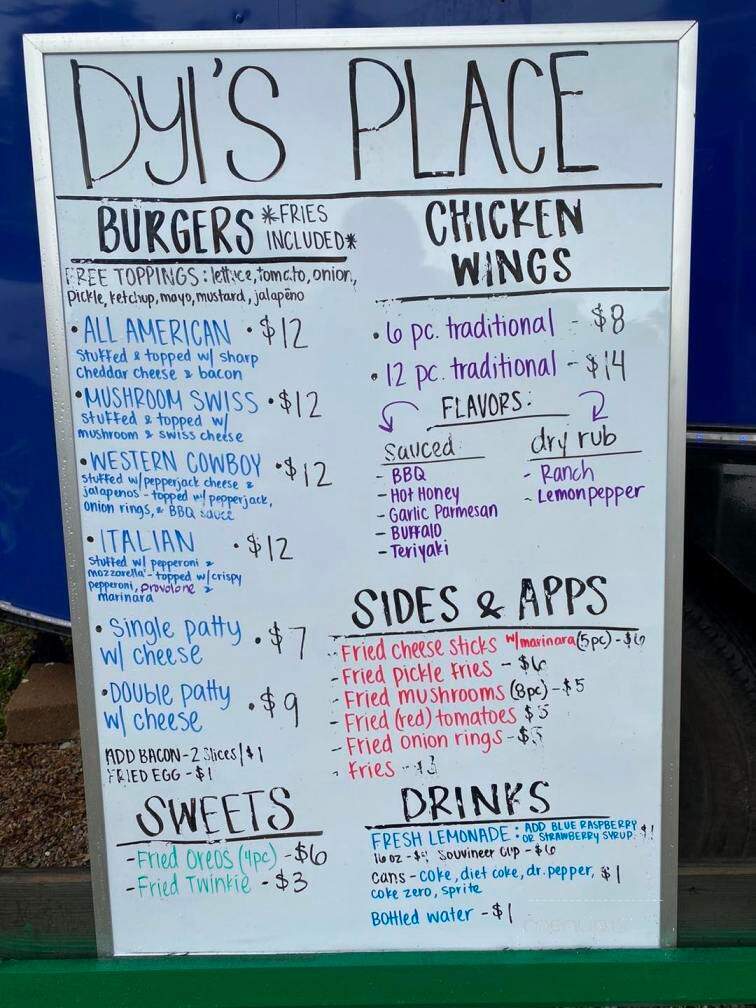 DYL'S PLACE
BURGERS *FRIES INCLUDED*
FREE TOPPINGS: lettuce, tomato, onion,
pickle, ketchup, mayo, mustard, jalapeño
• ALL AMERICAN • $12
stuffed & topped w/ sharp
cheddar cheese & bacon
• MUSHROOM SWISS • $12
stuffed & topped w/
mushroom & swiss cheese
• WESTERN COWBOY • $12
stuffed w/ pepperjack cheese &
jalapenos - topped w/ pepperjack,
onion rings, & BBQ sauce
• ITALIAN • $12
stuffed w/ pepperoni &
mozzarella - topped w/ crispy
pepperoni, provolone &
marinara
• Single patty w/ cheese • $7
• Double patty w/ cheese • $9
ADD BACON - 2 Slices/$1
FRIED EGG - $1
SWEETS
- Fried Oreos (4pc) - $6
- Fried Twinkie - $3
CHICKEN
WINGS
• 6 pc. traditional - $8
• 12 pc. traditional - $14
FLAVORS:
sauced
- BBQ
- Hot Honey
- Garlic Parmesan
- Buffalo
- Teriyaki
dry rub
- Ranch
- Lemon pepper
SIDES & APPS
- Fried cheese sticks w/ marinara (5pc) - $6
- Fried pickle fries - $6
- Fried mushrooms (8pc) - $5
- Fried (red) tomatoes $5
- Fried onion rings - $5
- fries
DRINKS
FRESH LEMONADE: ADD BLUE RASPBERRY OR STRAWBERRY SYRUP $1
16 oz - $4 Souvineer Cup - $6
cans - coke, diet coke, dr. pepper, $1
coke zero, sprite
Bottled water - $1